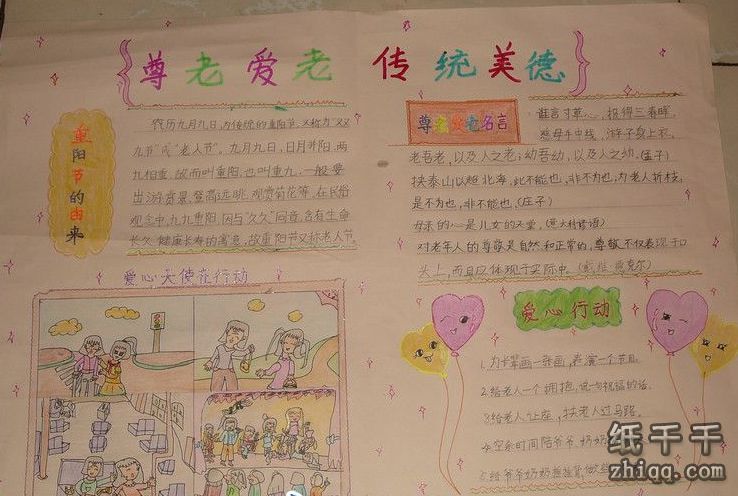 尊老爱老 传统美德
重阳节的由来
农历九月九日,为传统的重阳节,又称为“双
九节”或“老人节”。九月九日,日月并阳,两
九相重,故而叫重阳,也叫重九。一般要
出游赏景、登高远眺、观赏菊花等,在民俗
观念中,九九重阳,因与“久久”同音,含有生命
长久、健康长寿的寓意,故重阳节又称老人节。
爱心天使在行动
尊老爱老名言
谁言寸草心,报得三春晖。
慈母手中线,游子身上衣。
老吾老,以及人之老;幼吾幼,以及人之幼。(孟子)
挟泰山以超北海,此不能也,非不为也,为老人折枝,
是不为也,非不能也。(庄子)
母亲的心是儿女的天堂,(意大利谚语)
对老年人的尊敬是自然和正常的,尊敬不仅表现于口
头上,而且应体现于实际中。
爱心行动
1.为长辈画一张画,表演一个节目。
2.给老人一个拥抱,说一句祝福的话。
3.给老人让座,扶老人过马路。
4.空余时间陪爷爷、奶奶
5.给爷爷奶奶捶捶背,做些
纸千千
zhiqq.com